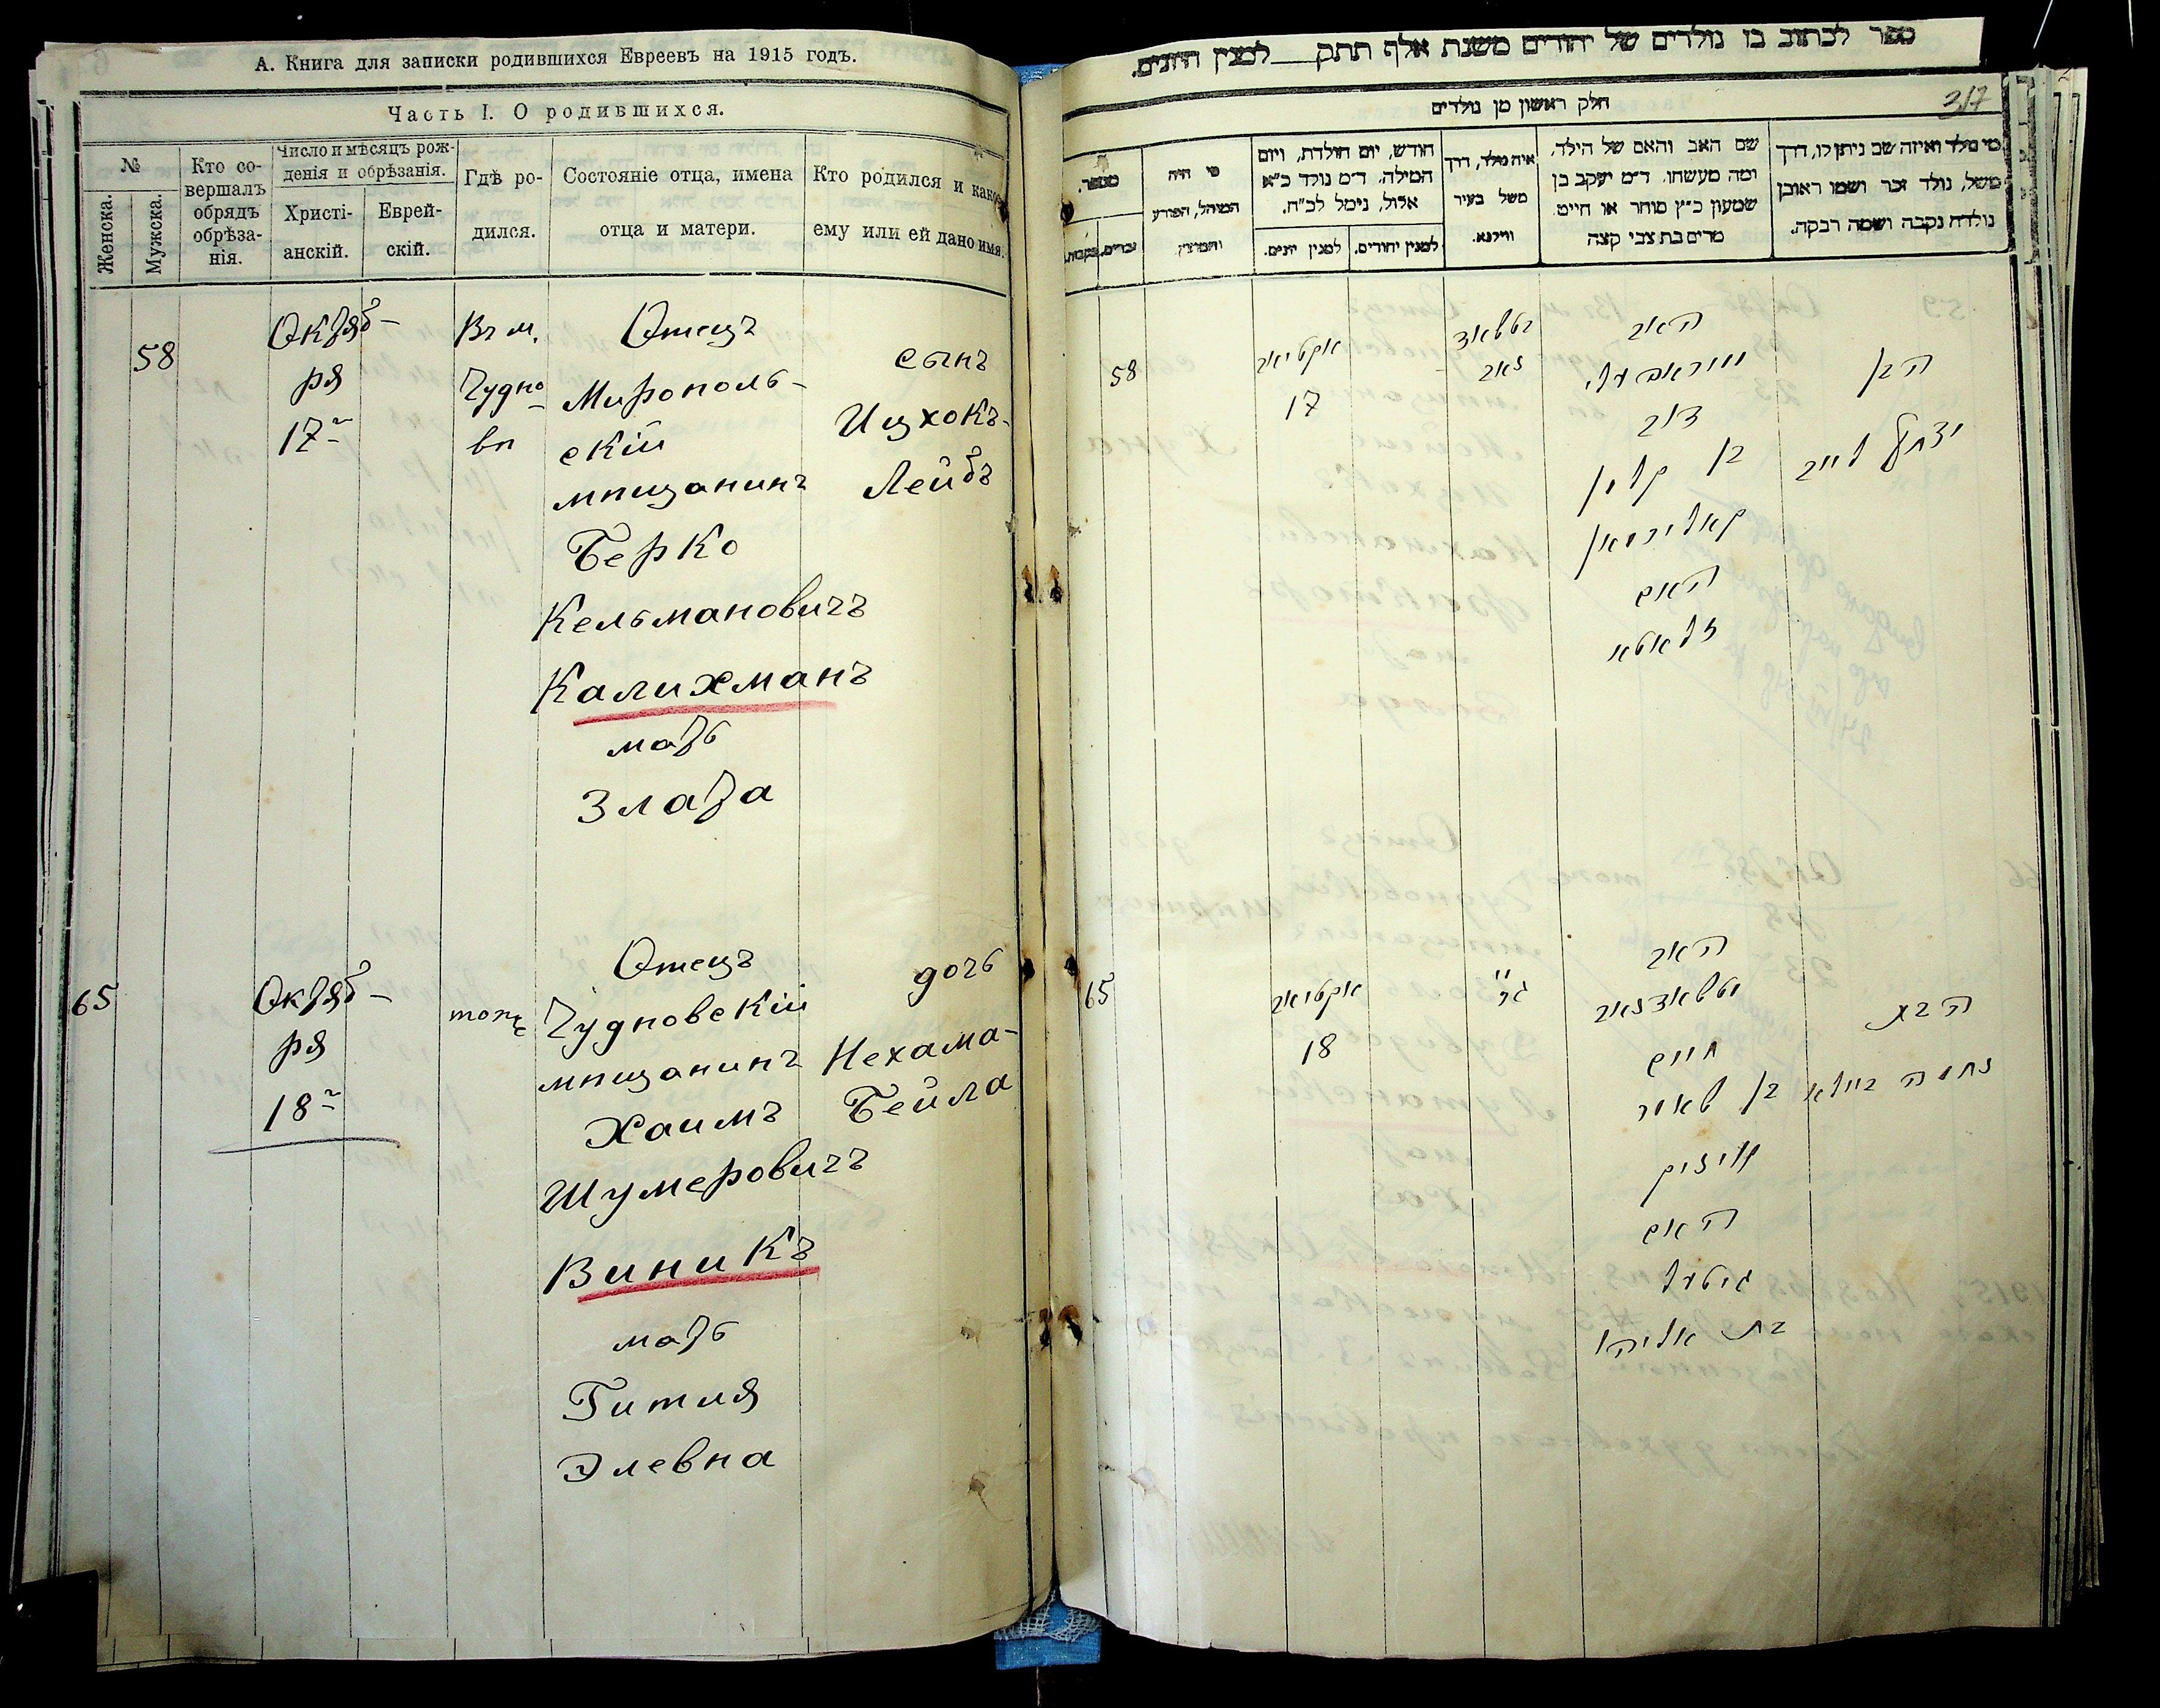 А. Книга для записки родившихся Евреевъ на 1915 годъ.
Часть I. О родившихся.
№
Женска.
Мужска.
Кто со-
вершалъ
обрядъ
обрѣза-
нія.
Число и мѣсяцъ рож-
денія и обрѣзанія.
Христі-
анскій.
Еврей-
скій.
Гдѣ ро-
дился.
Состояніе отца, имена
отца и матери.
Кто родился и какое
ему или ей дано имя.
58
Октяб-
ря
17
Въ м.
Чудно
вѣ
Отецъ
Мирополь-
скій
мѣщанинъ
Берко
Кельмановичъ
Калихманъ
мать
Злата
сынъ
Ицхокъ-
Лейбъ
65
Октяб-
ря
18
тоже
Отецъ
Чудновскій
мѣщанинъ
Хаимъ
Шумеровичъ
Виникъ
мать
Гитля
Элевна
дочь
Нехама-
Бейла
ספר לכתוב בו נולדים של יהודים משנת אלף תתק למנין היונים.
חלק ראשון מן נולדים
317
מי נולד ואיזה שם ניתן לו, דרך
משל, נולד זכר ושמו ראובן
נולדה נקבה ושמה רבקה.
שם האב והאם של הילד,
ומה מעשהו. ד״מ יעקב בן
שמעון כ״ץ סוחר או חייט
מרים בת צבי קצה
איה נולד, דרך
משל בעיר
ווילנא.
חודש, יום הולדת, ויום
המילה. ד״מ נולד כ״א
אלול, נימל לכ״ח.
למנין יהודים.
למנין יונים.
מי היה
המוהל, הפורע
והמוצץ
מספר.
זכרים.
נקבות.
הבן
יצחק לייב
האב
דוב
בן קלמן
קאליכמאן
האם
זלאטא
אקטיאב
17
58
הבת
נחמה ביילא
האב
חיים
בן
האם
גיטל
בת אליהו
אקטיאב
18
65